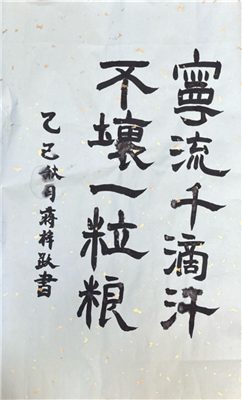 寧流千滴汗
不壞一粒粮
乙巳秋月蒋梓歐書